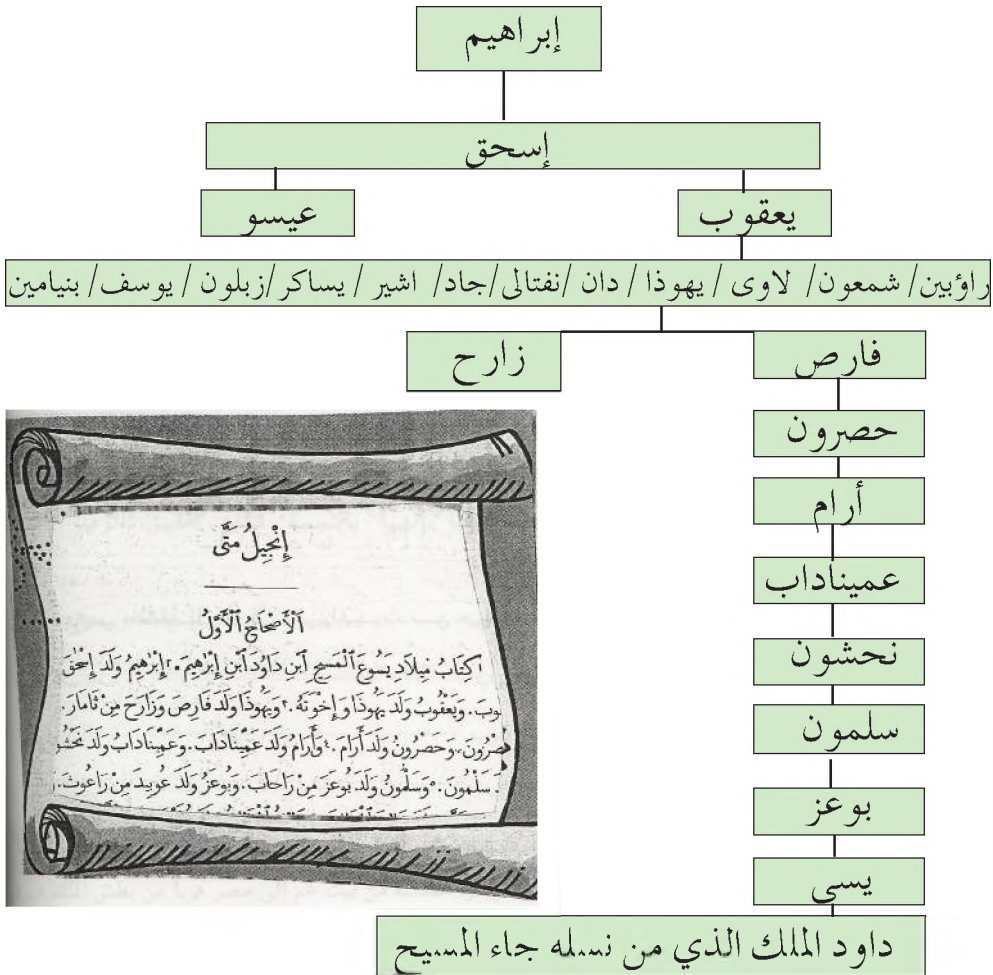 إبراهيم
إسحق
يعقوب
عيسو
راؤبين/ شمعون/ لاوى/ يهوذا/ دان/نفتالى/جاد/ اشير/ يساكر/زبلون/ يوسف/ بنيامين
فارص
زارح
حصرون
أرام
عميناداب
نحشون
سلمون
بوعز
يسى
داود الملك الذي من نسله جاء المسيح
إِنْجِيلُ مَتَّى
اَلْأَصْحَاحُ ٱلْأَوَّلُ
١كِتَابُ مِيلَادِ يَسُوعَ ٱلْمَسِيحِ ٱبْنِ دَاوُدَ ٱبْنِ إِبْرٰهِيمَ. ٢إِبْرٰهِيمُ وَلَدَ إِسْحٰقَ
وبَ. وَيَعْقُوبُ وَلَدَ يَهُوذَا وَإِخْوَتَهُ. ٣وَيَهُوذَا وَلَدَ فَارِصَ وَزَارَحَ مِنْ ثَامَارَ.
صْرُونَ. وَحَصْرُونُ وَلَدَ أَرَامَ. ٤وَأَرَامُ وَلَدَ عَمِّينَادَابَ. وَعَمِّينَادَابُ وَلَدَ نَحْشُو
سَلْمُونَ. ٥وَسَلْمُونُ وَلَدَ بُوعَزَ مِنْ رَاحَابَ. وَبُوعَزُ وَلَدَ عُوبِيدَ مِنْ رَاعُوثَ.